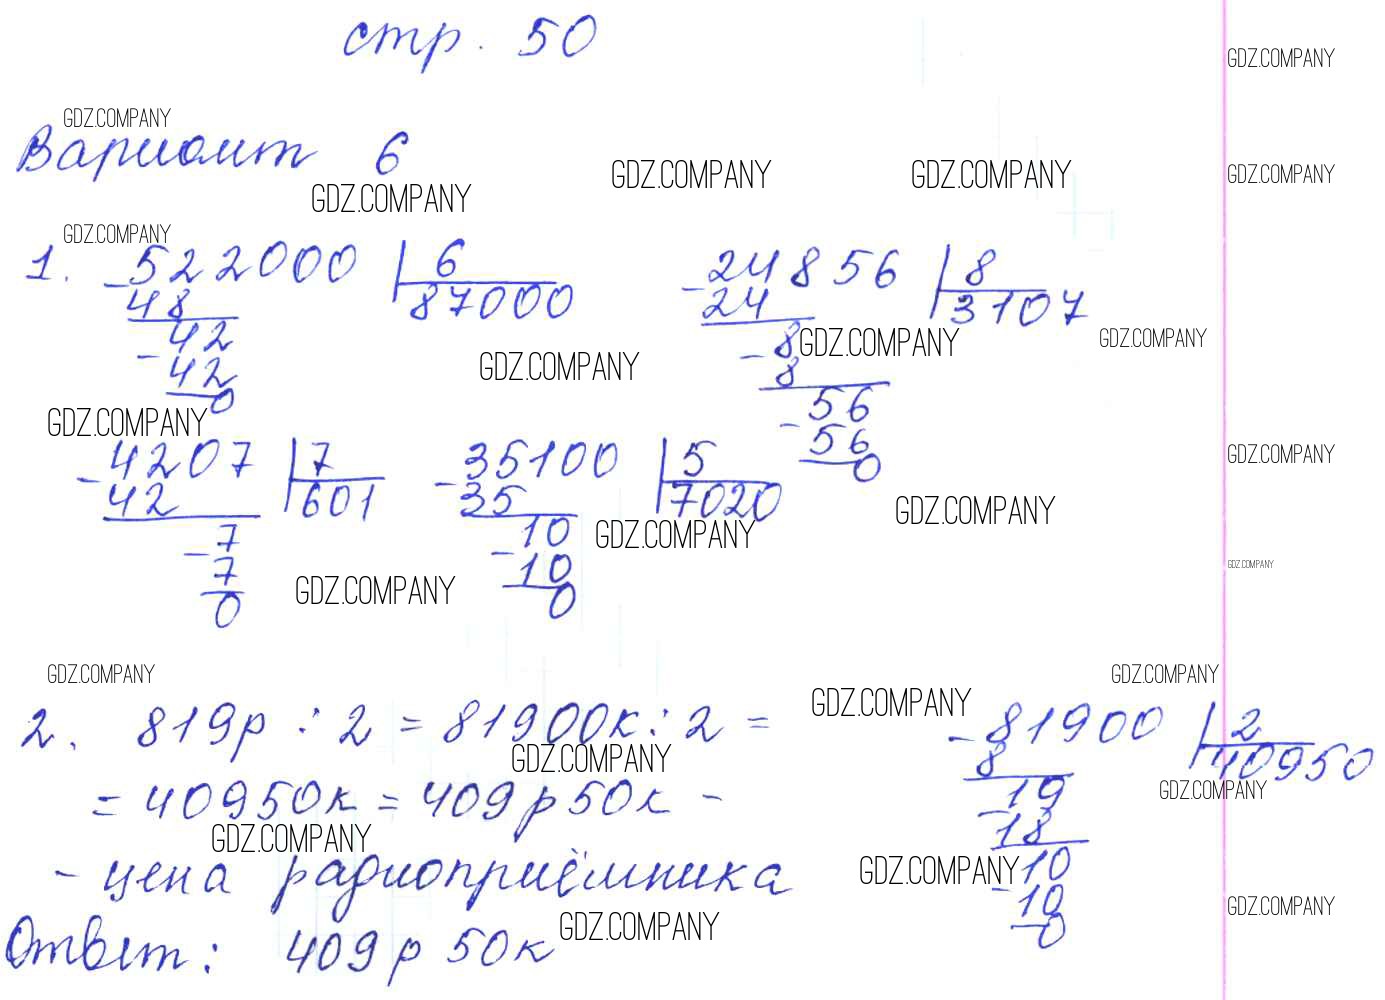 стр. 50
GDZ.COMPANY
GDZ.COMPANY
Вариант 6
GDZ.COMPANY GDZ.COMPANY GDZ.COMPANY GDZ.COMPANY
GDZ.COMPANY
1. -522000 | 6
48 87000
42
-42
0
-24856 | 8
24 3107
8 GDZ.COMPANY GDZ.COMPANY
-8
56
-56
0
GDZ.COMPANY
GDZ.COMPANY
-4207 | 7
42 601
7
-7
0
-35100 | 5
35 7020
10
-10
0
GDZ.COMPANY
GDZ.COMPANY
GDZ.COMPANY
GDZ.COMPANY
GDZ.COMPANY
GDZ.COMPANY GDZ.COMPANY
GDZ.COMPANY
2. 819р : 2 = 81900к : 2 =
GDZ.COMPANY
= 40950к = 409р 50к -
GDZ.COMPANY
- цена радиоприёмника
-81900 | 2
8 40950
19
-18
10
-10
0
GDZ.COMPANY
GDZ.COMPANY
GDZ.COMPANY
GDZ.COMPANY
Ответ: 409р 50к